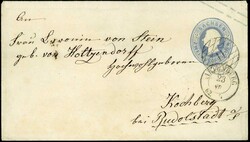 An
Frau Baronin von Stein
geb. von Holtzendorff
Hochwohlgeboren
Kochberg
bei Rudolstadt